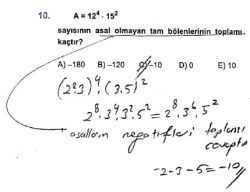 10. A = 12⁴ · 15²
sayısının asal olmayan tam bölenlerinin toplamı
kaçtır?
A) –180 B) –120 C) –10 D) 0 E) 10
(2².3)⁴ (3.5)²
2⁸.3⁴3².5² = 2⁸.3⁶.5²
asalların negatifleri toplamı
cevaptır
-2-3-5=-10